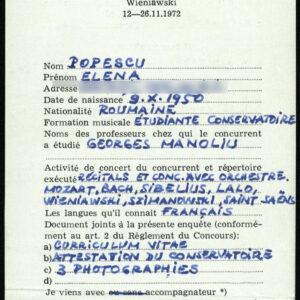 Wieniawski
12—26.11.1972
Nom POPESCU
Prénom ELENA
Adresse
Date de naissance 9.X.1950
Nationalité ROUMAINE
Formation musicale ÉTUDIANTE CONSERVATOIRE
Noms des professeurs chez qui le concurrent
a étudié GEORGES MANOLIU
Activité de concert du concurrent et répertoire
exécuté RÉCITALS ET CONC. AVEC ORCHESTRE.
MOZART, BACH, SIBELIUS, LALO,
WIENIAWSKI, SZIMANOWSKI, SAINT SAËNS
Les langues qu'il connaît FRANÇAIS
Document joints à la présente enquête (conformé-
ment au art. 2 du Règlement du Concours):
a) CURRICULUM VITAE
b) ATTESTATION DU CONSERVATOIRE
c) 3 PHOTOGRAPHIES
d)
Je viens avec ou sans accompagnateur *)